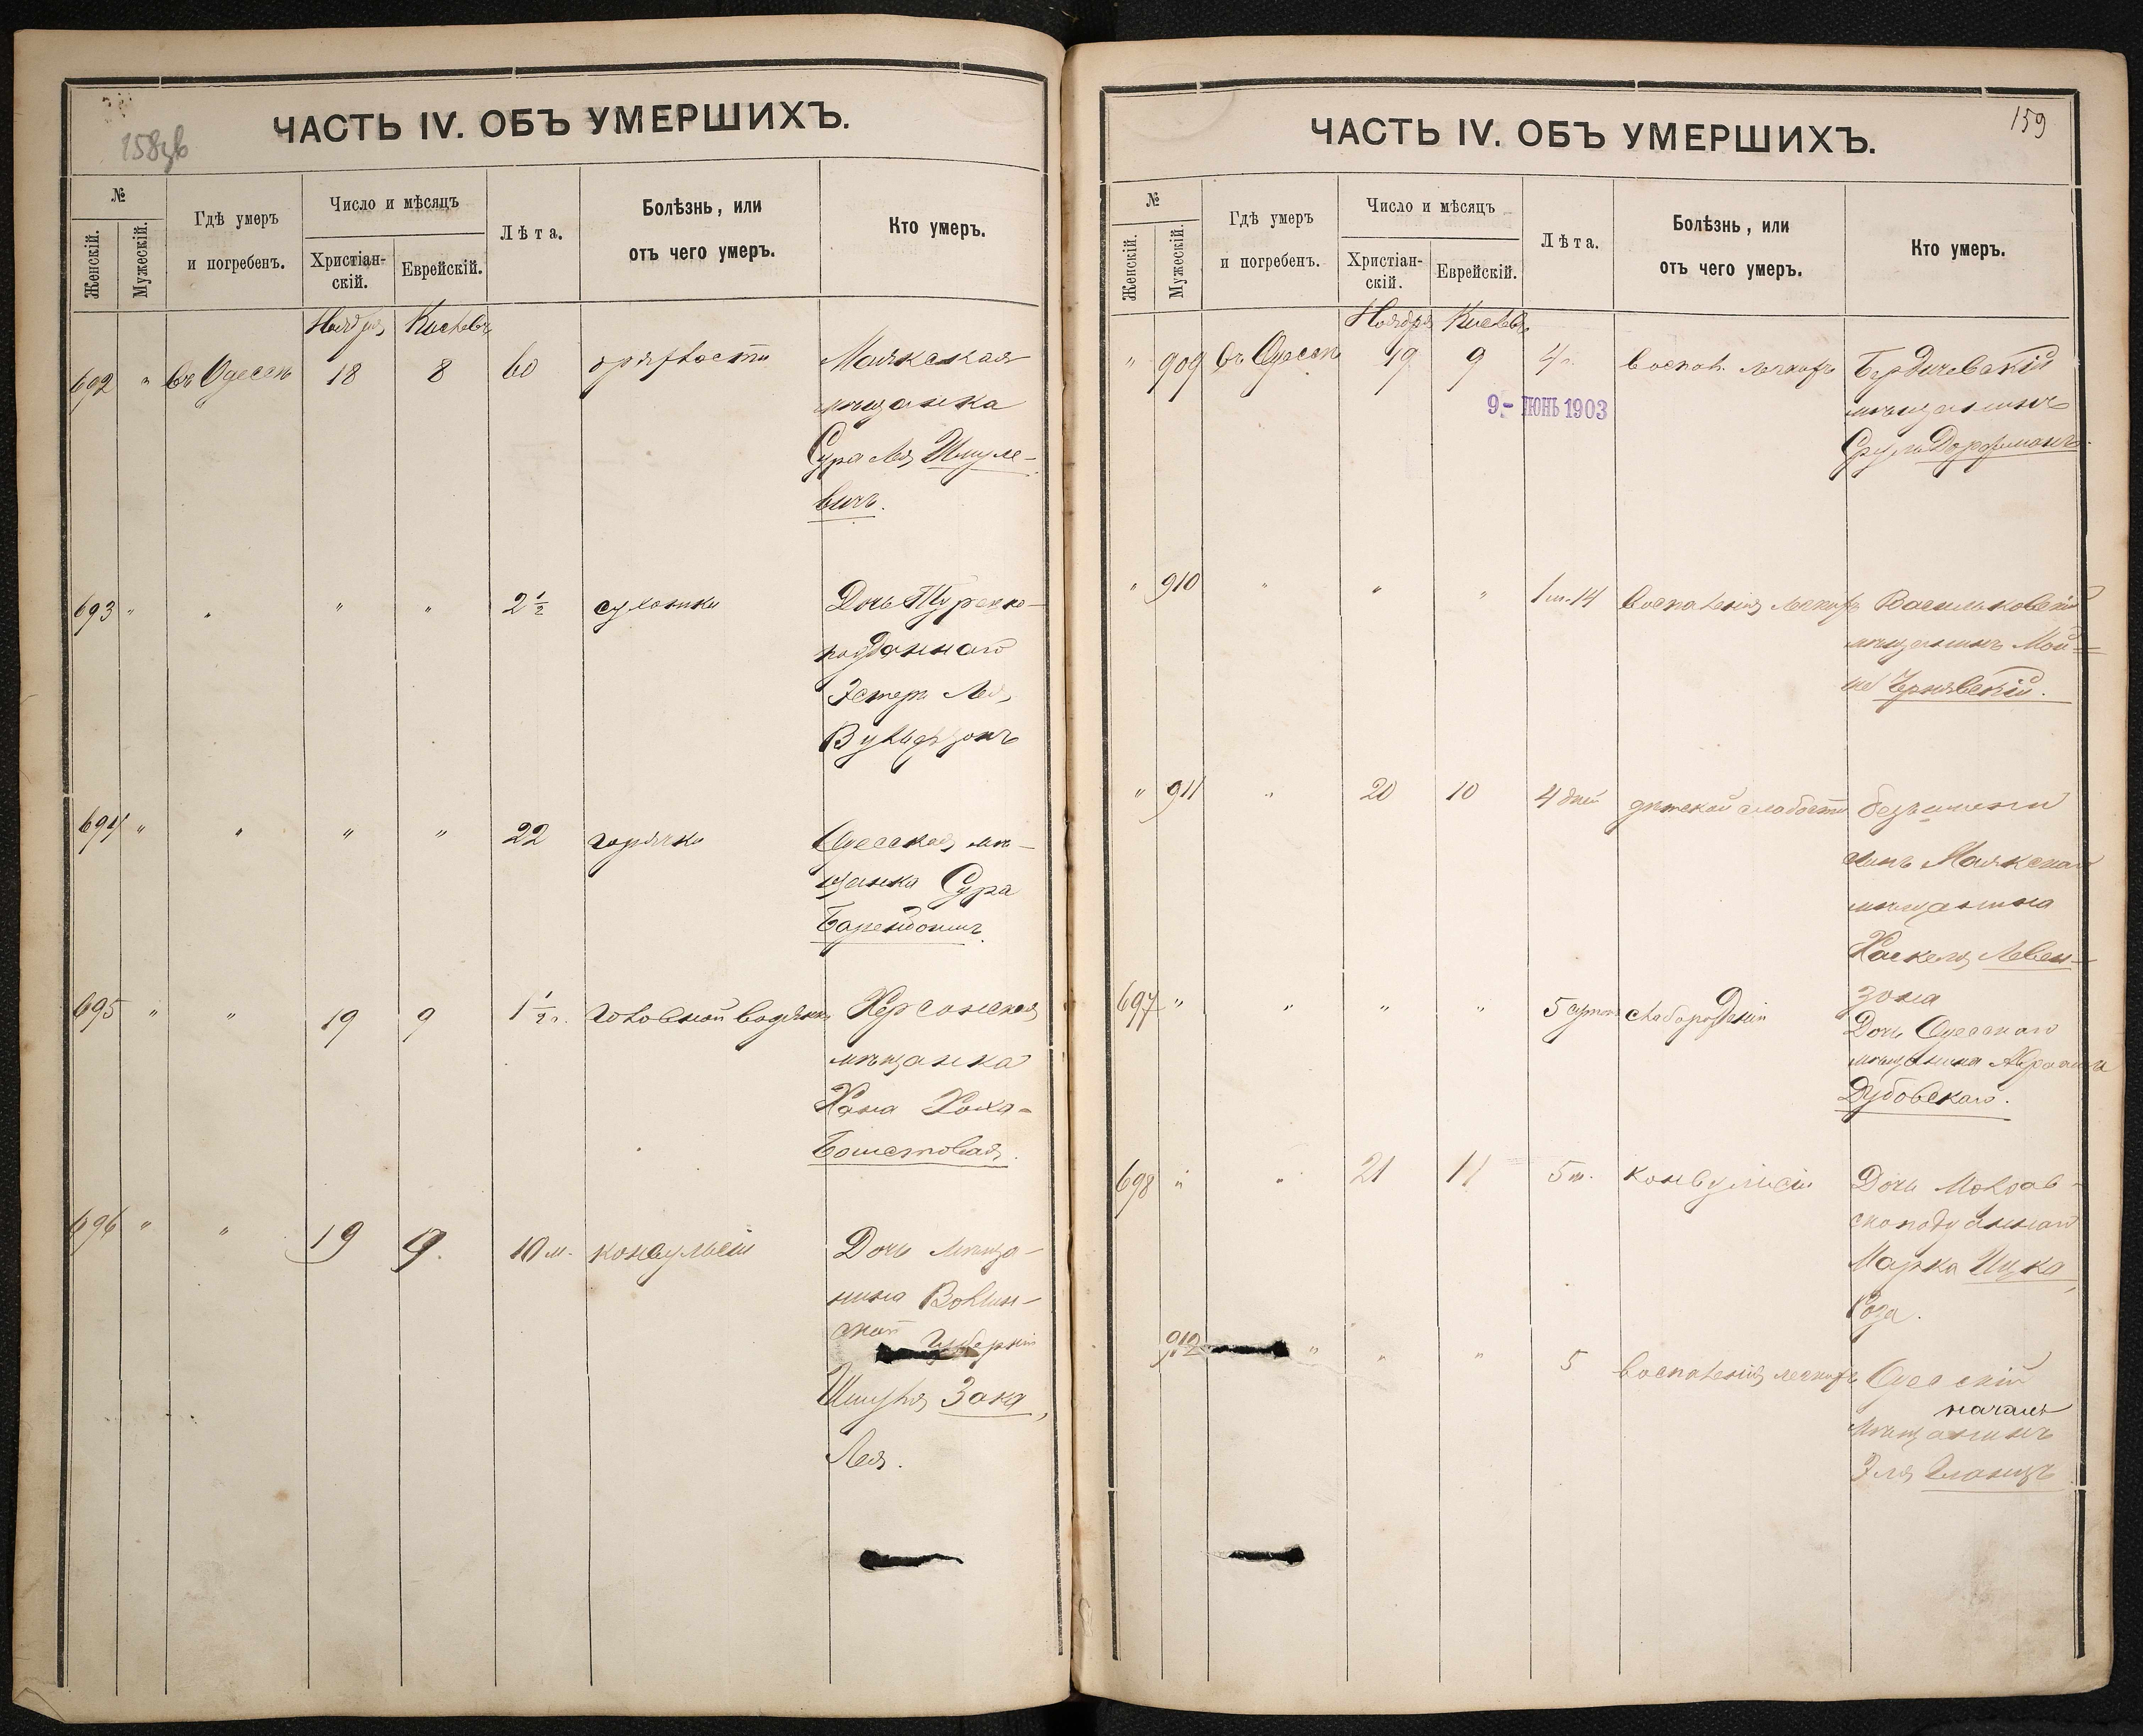 158об
ЧАСТЬ IV. ОБЪ УМЕРШИХЪ.
№
Женскій.
Мужескій.
Гдѣ умеръ
и погребенъ.
Число и мѣсяцъ
Христіан-
скій.
Еврейскій.
Лѣта.
Болѣзнь, или
отъ чего умеръ.
Кто умеръ.
Ноября Кислевъ
692 " въ Одессѣ 18 8 60 дряхлости Маякская
мѣщанка
Сура Лея Шмуле-
вичъ.
693 " " " " 2 1/2 сухотки Дочь Турецко-
подданнаго
Эстеръ Лея
694 " " " " 22 горячки Одесская мѣ-
щанка Сура
695 " " 19 9 1 1/2 г. головной водянки Херсонская
мѣщанка
Хана
696 " " 19 9. 10 м. конвульсіи Дочь мѣща-
нина Волын-
ской Губерніи
Шмуля Зака,
Лея.
159
ЧАСТЬ IV. ОБЪ УМЕРШИХЪ.
№
Женскій.
Мужескій.
Гдѣ умеръ
и погребенъ.
Число и мѣсяцъ
Христіан-
скій.
Еврейскій.
Лѣта.
Болѣзнь, или
отъ чего умеръ.
Кто умеръ.
Ноября Кислевъ
" 909 въ Одессѣ 19 9 4 г. воспал. легкихъ Бердичевскій
9.- ІЮНЬ 1903
мѣщанинъ
Сруль Дорфманъ.
" 910 " " " 1 м. 14 воспаленія легкихъ Васильковскій
мѣщанинъ Мой-
ше Чернявскій.
" 911 " 20 10 4 дней дѣтской слабости безъимени
сынъ Маякскаго
мѣщанина
Хаскеля Левен-
зона
697 " " " " 5 сутокъ слаборожденія
Дочь Одесскаго
мѣщанина Абрама
Дубовскаго.
698 " " 21 11 5 м. конвульсіи Дочь Молдав-
скоподданнаго
Марка Ицко,
Роза.
912 " " " 5 воспаленія легкихъ Одесскій
мѣщанинъ
Эля Гланцъ